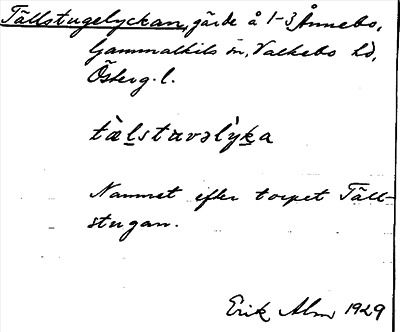 Tällstugelyckan, gärde å 1-3 Ånnebo,
Gammalkils sn, Valkebo hd,
Österg. l.
tälstuvəlyka
Namnet efter torpet Täll-
stugan.
Erik Alm 1929